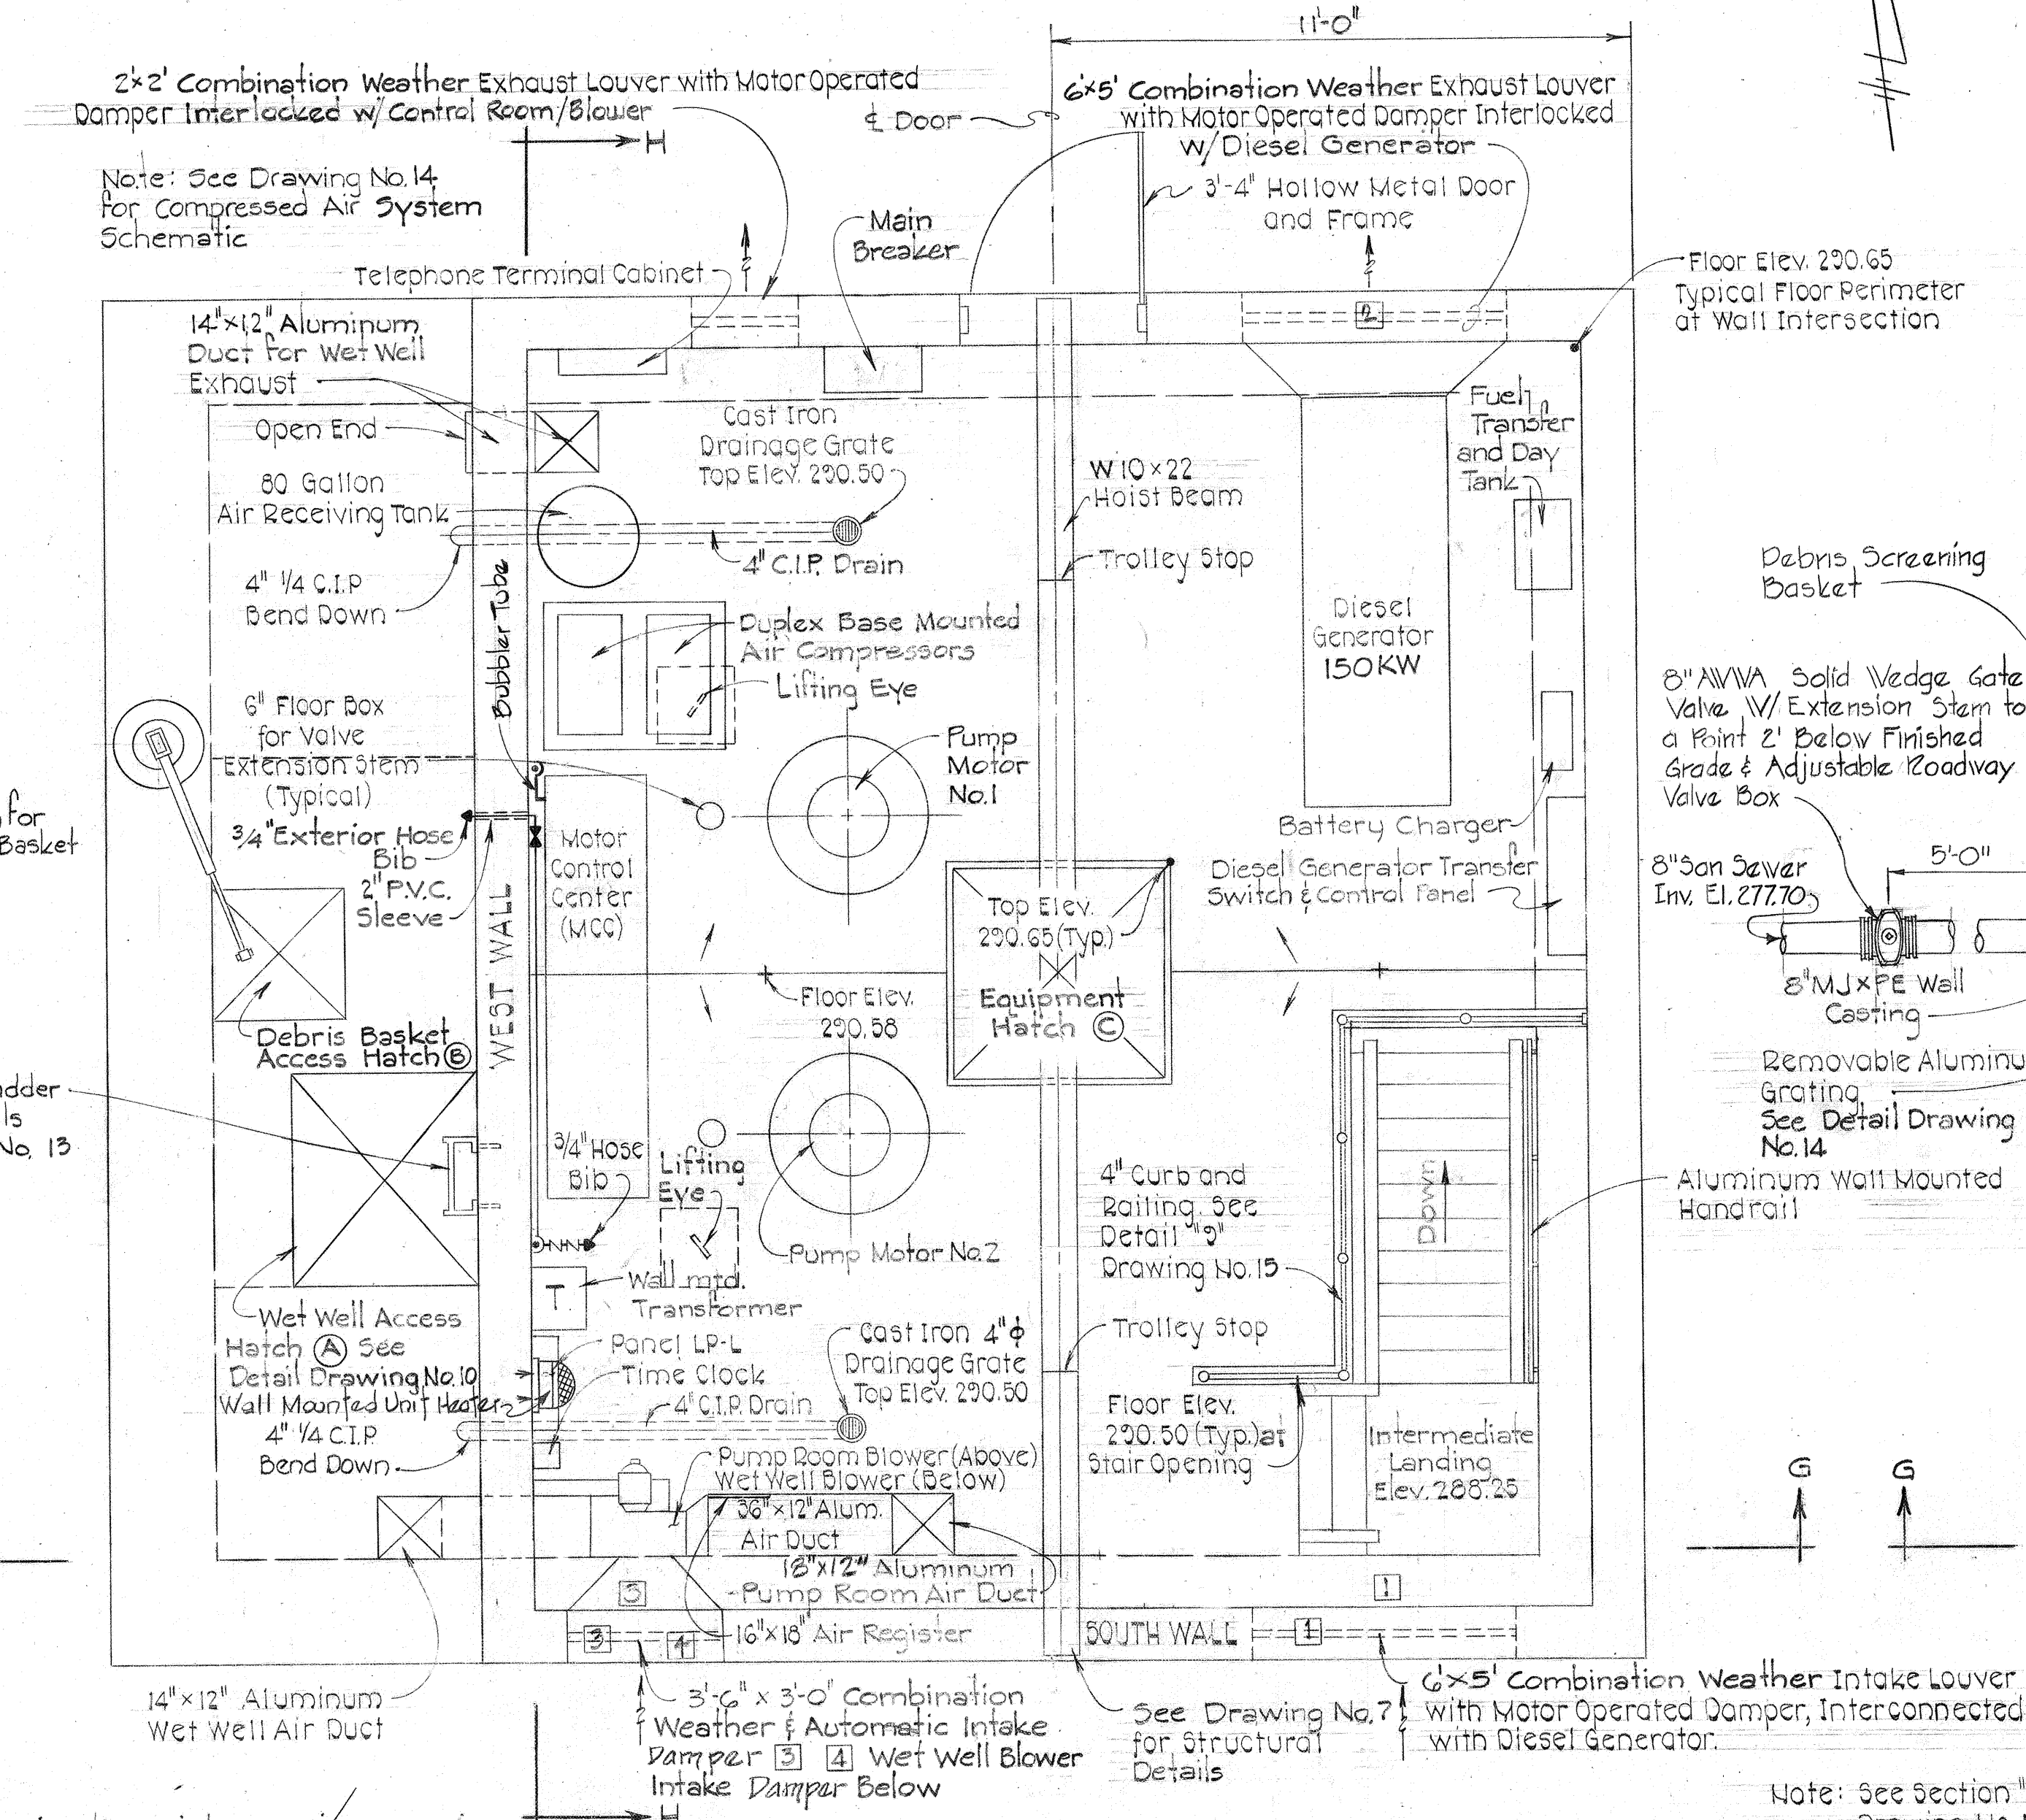 11'-0"
2'×2' Combination Weather Exhaust Louver with Motor Operated
Damper Interlocked w/ Control Room/Blower
℄ Door
6'×5' Combination Weather Exhaust Louver
with Motor Operated Damper Interlocked
w/Diesel Generator
H
Note: See Drawing No. 14
for Compressed Air System
Schematic
3'-4" Hollow Metal Door
and Frame
Main
Breaker
Telephone Terminal Cabinet
Floor Elev. 290.65
Typical Floor Perimeter
at Wall Intersection
2
14"×12" Aluminum
Duct for Wet Well
Exhaust
Open End
Cast Iron
Drainage Grate
Top Elev. 290.50
Fuel
Transfer
and Day
Tank
80 Gallon
Air Receiving Tank
W 10×22
Hoist Beam
4" C.I.P. Drain
Trolley Stop
4" 1/4 C.I.P
Bend Down
Bubbler Tube
Debris Screening
Basket
Duplex Base Mounted
Air Compressors
Lifting Eye
Diesel
Generator
150KW
6" Floor Box
for Valve
Extension Stem
(Typical)
Pump
Motor
No.1
8" AWWA Solid Wedge Gate
Valve W/ Extension Stem to
a Point 2' Below Finished
Grade & Adjustable Roadway
Valve Box
for
Basket
3/4" Exterior Hose
Bib
2" P.V.C.
Sleeve
Motor
Control
Center
(MCC)
Battery Charger
Diesel Generator Transfer
Switch & Control Panel
8" San Sewer
Inv. El. 277.70
5'-0"
WEST WALL
Top Elev.
290.65 (Typ.)
Equipment
Hatch C
Floor Elev.
290.58
8" MJ×PE Wall
Casting
Debris Basket
Access Hatch B
Removable Aluminu
Grating
See Detail Drawing
No.14
adder
ls
No. 13
3/4" Hose
Bib
Lifting
Eye
4" Curb and
Railing. See
Detail "9"
Drawing No. 15
Down
Aluminum Wall Mounted
Handrail
Pump Motor No.2
T
Wall mtd.
Transformer
Wet Well Access
Hatch A See
Detail Drawing No. 10
Panel LP-L
Time Clock
Wall Mounted Unit Heater
Cast Iron 4" ϕ
Drainage Grate
Top Elev. 290.50
Trolley Stop
4" C.I.P. Drain
4" 1/4 C.I.P.
Bend Down
Floor Elev.
290.50 (Typ.) at
Stair Opening
Intermediate
Landing
Elev. 288.25
Pump Room Blower (Above)
Wet Well Blower (Below)
36"×12" Alum.
Air Duct
18"×12" Aluminum
Pump Room Air Duct
G G
5
1
3 4
16"×18" Air Register
SOUTH WALL
1
14"×12" Aluminum
Wet Well Air Duct
3'-6" × 3'-0" Combination
Weather & Automatic Intake
Damper 3 4 Wet Well Blower
Intake Damper Below
See Drawing No. 7
for Structural
Details
6'×5' Combination Weather Intake Louver
with Motor Operated Damper, Interconnected
with Diesel Generator.
H
Note: See Section "